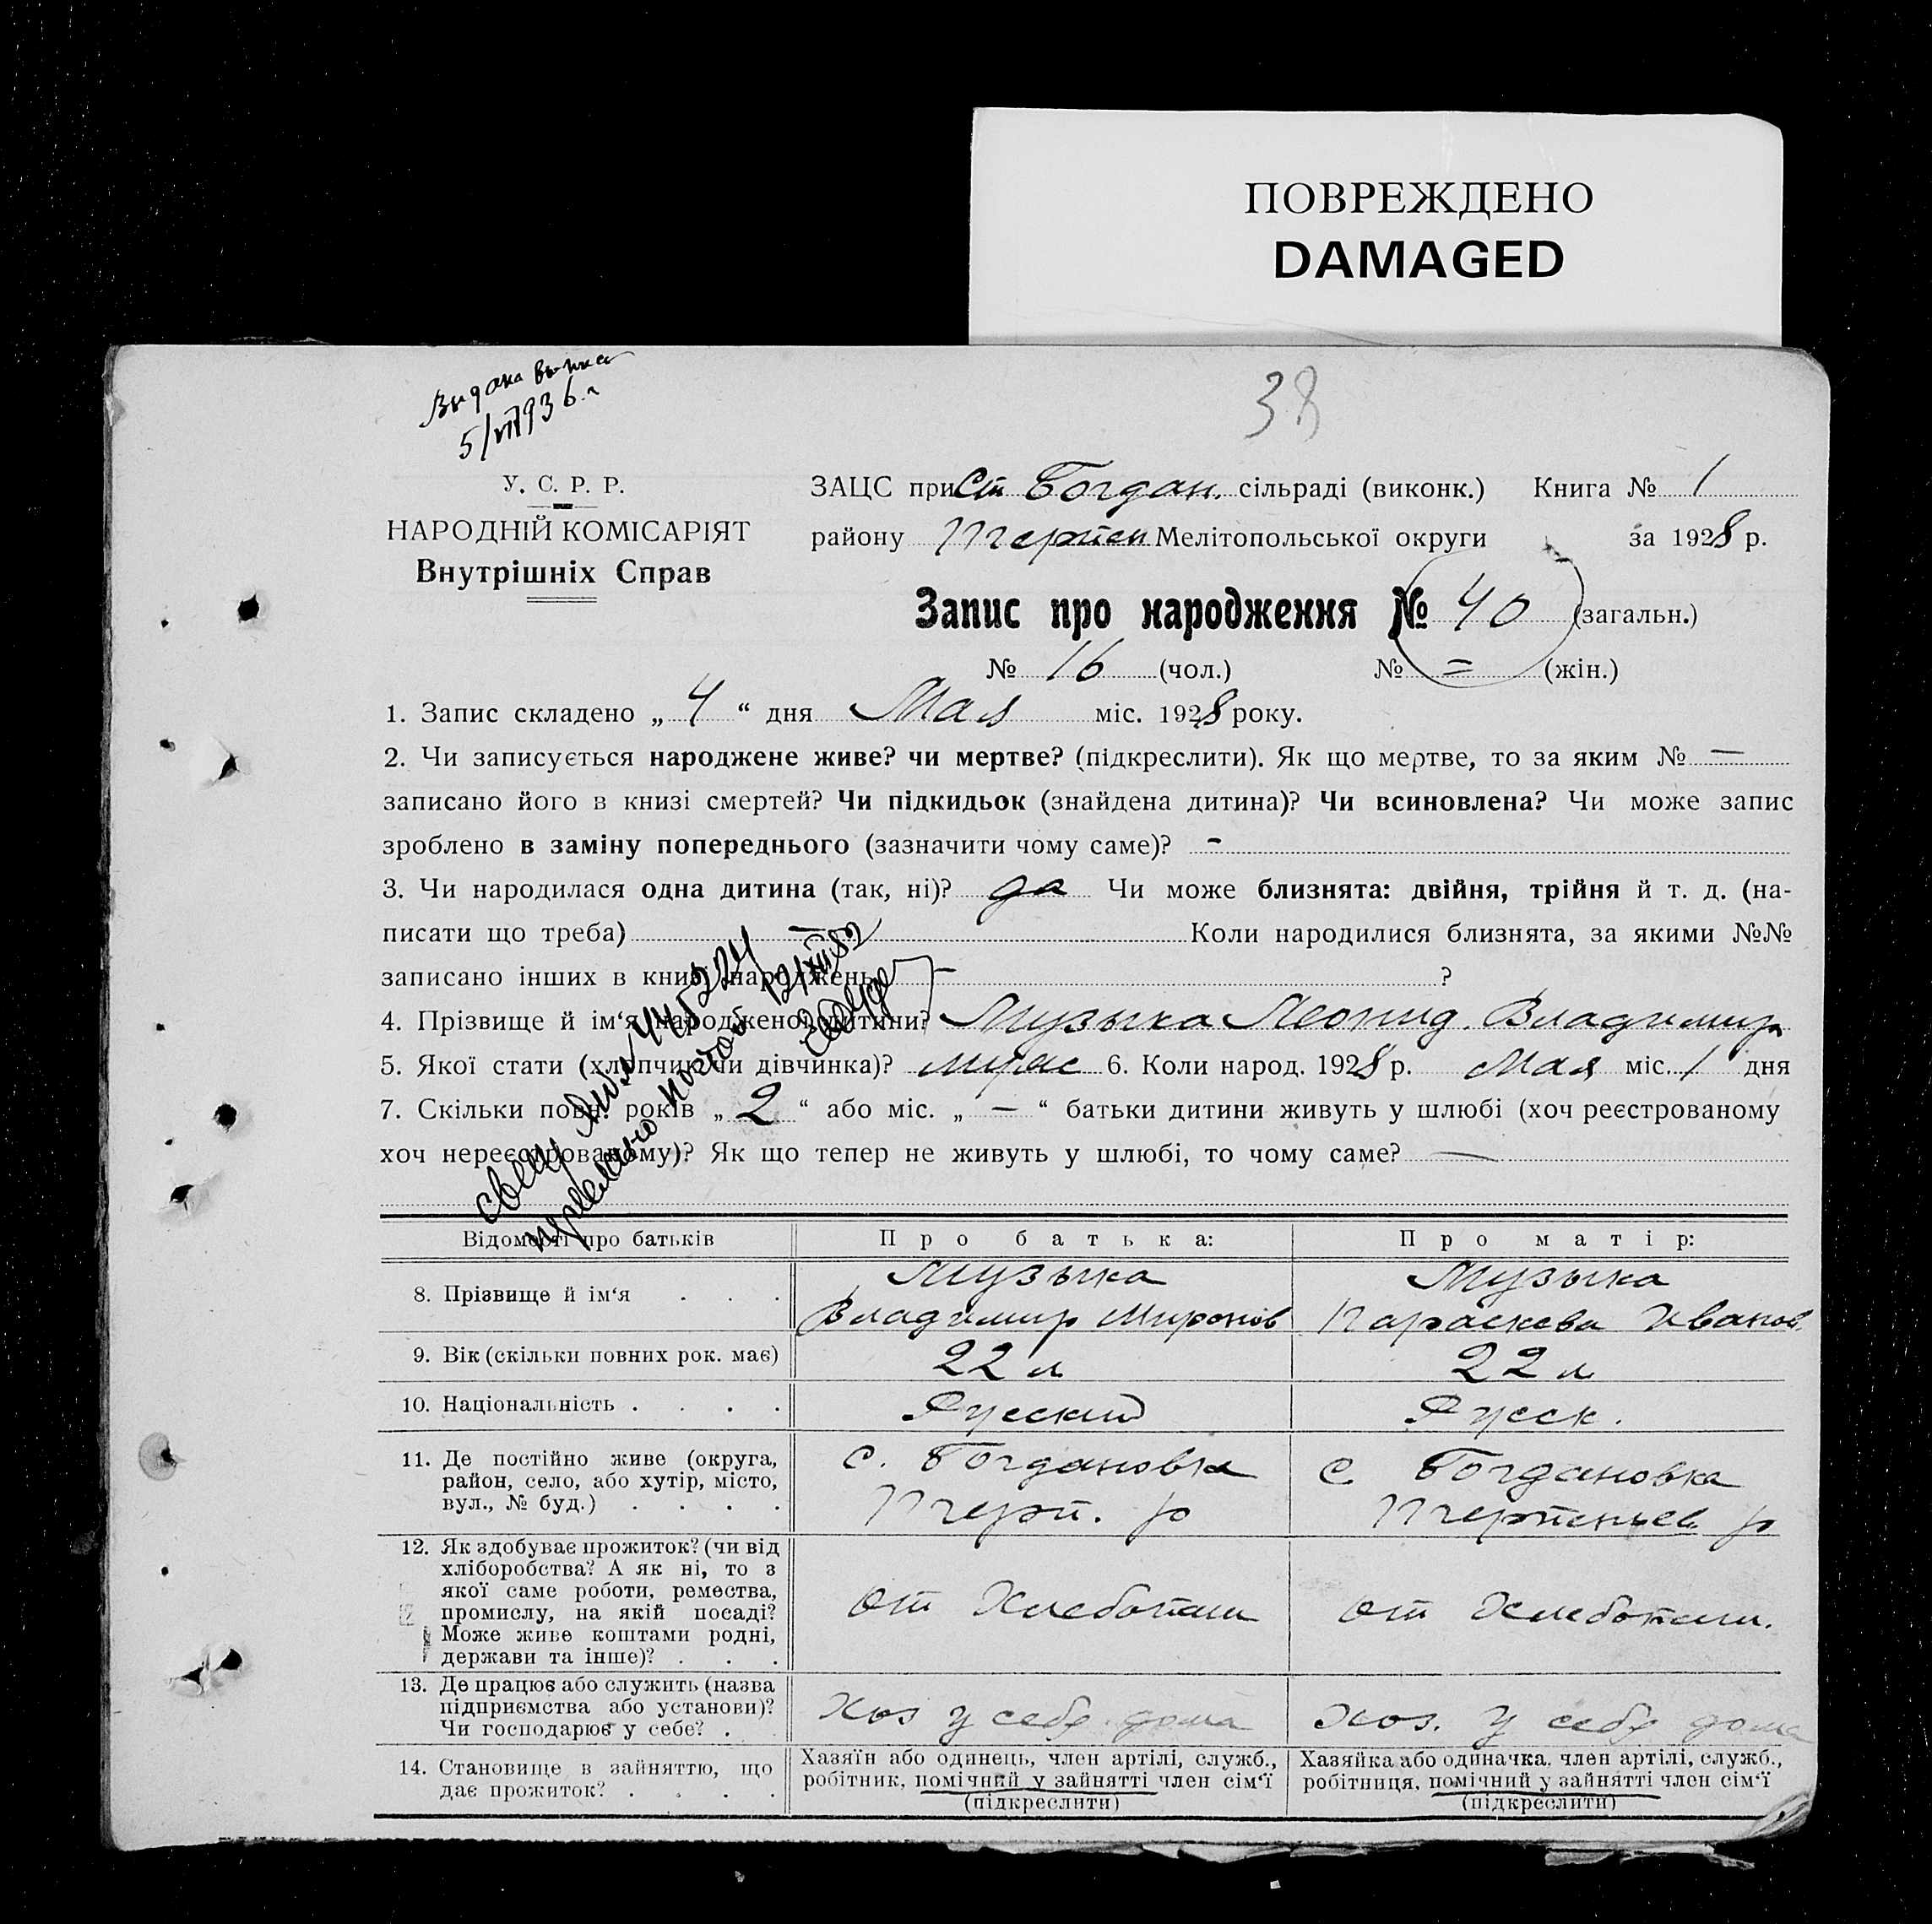 ПОВРЕЖДЕНО
DAMAGED
Видана
5/VII 1936 г
38
У. С. Р. Р.
НАРОДНІЙ КОМІСАРІЯТ
Внутрішніх Справ
ЗАЦС при Ст Богдан. сільраді (виконк.) Книга № 1
району Мелітопольської округи за 1928 р.
Запис про народження № 40 (загальн.)
№ 16 (чол.) № = (жін.)
1. Запис складено „ 4 “ дня Мая міс. 1928 року.
2. Чи записується народжене живе? чи мертве? (підкреслити). Як що мертве, то за яким № —
записано його в книзі смертей? Чи підкидьок (знайдена дитина)? Чи всиновлена? Чи може запис
зроблено в заміну попереднього (зазначити чому саме)? -
3. Чи народилася одна дитина (так, ні)? да Чи може близнята: двійня, трійня й т. д. (на-
писати що треба) — Коли народилися близнята, за якими №№
записано інших в книзі народжень — ?
4. Прізвище й ім‘я народженої дитини? Музыка Леонид Владимир
5. Якої стати (хлопчик чи дівчинка)? 6. Коли народ. 1928 р. Мая міс. 1 дня
7. Скільки повн. років „ 2 “ або міс. „ — “ батьки дитини живуть у шлюбі (хоч реєстрованому
хоч нереєстрованому)? Як що тепер не живуть у шлюбі, то чому саме? —
Відомості про батьків
Про батька:
Про матір:
8. Прізвище й ім‘я . . .
Музыка
Владимир Миронов
Музыка
Параскева Иванов.
9. Вік (скільки повних рок. має)
22 л
22 л
10. Національність . . . .
Русский
Русск.
11. Де постійно живе (округа,
район, село, або хутір, місто,
вул., № буд.) . . . .
с. Богдановка
р
с Богдановка
р
12. Як здобуває прожиток? (чи від
хліборобства? А як ні, то з
якої саме роботи, ремества,
промислу, на якій посаді?
Може живе коштами родні,
держави та інше)? . . .
от Хлебопаш
от Хлебопаш.
13. Де працює або служить (назва
підприємства або установи)?
Чи господарює у себе? .
Хоз у себе дома
Хоз. у себе дома
14. Становище в зайняттю, що
дає прожиток? . . . .
Хазяїн або одинець, член артілі, служб.,
робітник, помічний у зайнятті член сім‘ї
(підкреслити)
Хазяйка або одиначка, член артілі, служб.,
робітниця, помічний у зайнятті член сім‘ї
(підкреслити)